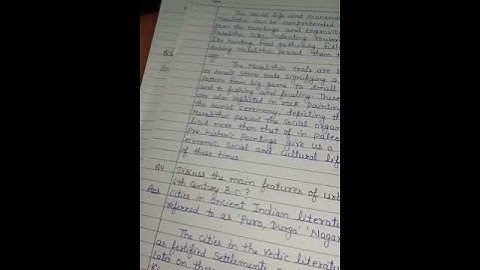 The Social life and economic
Mesolithic can be comprehended
from the Paintings and engraving
Mesolithic Sites, indicating
like hunting, food gathering, fishi
during Mesolithic period than
age.
The Mesolithic tools are
or small Stone tools signifying a
pattern from big game to small
and to fishing and fowling. These
are also reflected in rock painting
the burial ceremony, depicting th
Mesolithic period the social organ
lised more than that of in paleo
Pre historic Paintings give us a
economic social and cultural lif
of those times.
Q4 Discuss the main features of ur
6th Century B.C?
Ans Cities in ancient Indian literatu
referred to as 'Pura, Durga' 'Nagar
The cities in the Vedic literatu
as fortified Settlements
later on